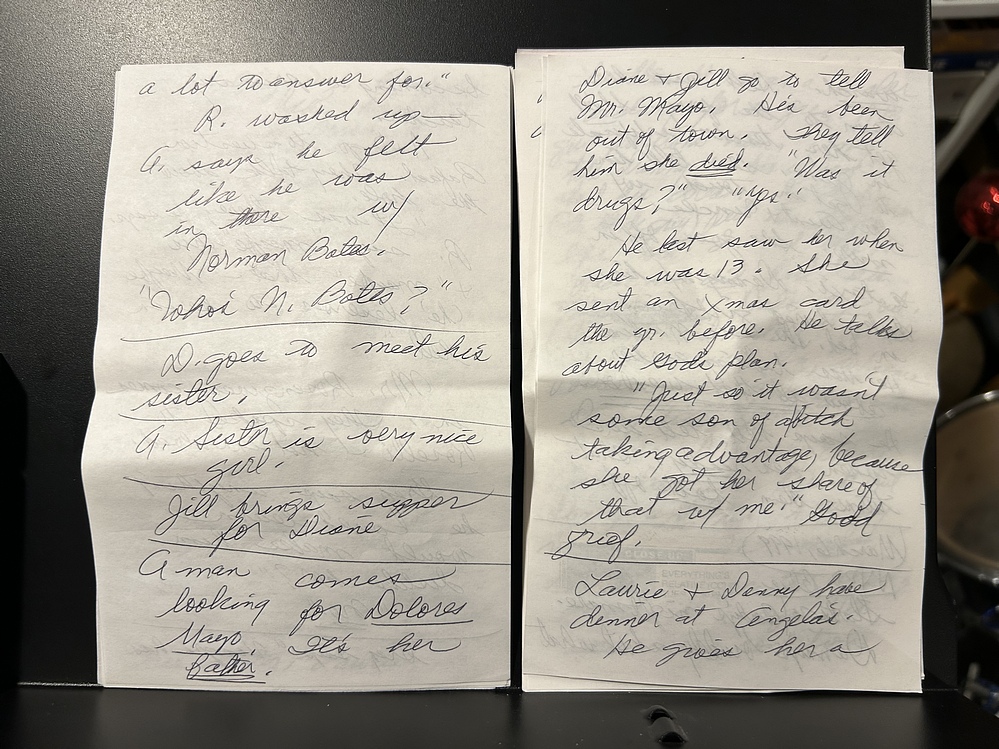 a lot to answer for."
R. washed up—
A. says he felt
like he was
in there w/
Norman Bates.
"Who's N. Bates?"
D. goes to meet his
sister.
A. Sister is very nice
girl.
Jill brings supper
for Diane
A man comes
looking for Dolores
Mayo. It's her
father.
Diane + Jill go to tell
Mr. Mayo. He's been
out of town. They tell
him she died. "Was it
drugs?" "Yes."
He last saw her when
she was 13. She
sent an Xmas card
the yr. before. He talks
about God's plan.
"Just so it wasn't
some son of a bitch
taking advantage, because
she got her share of
that w/ me." Good
grief.
Laurie + Denny have
dinner at Angela's.
He gives her a